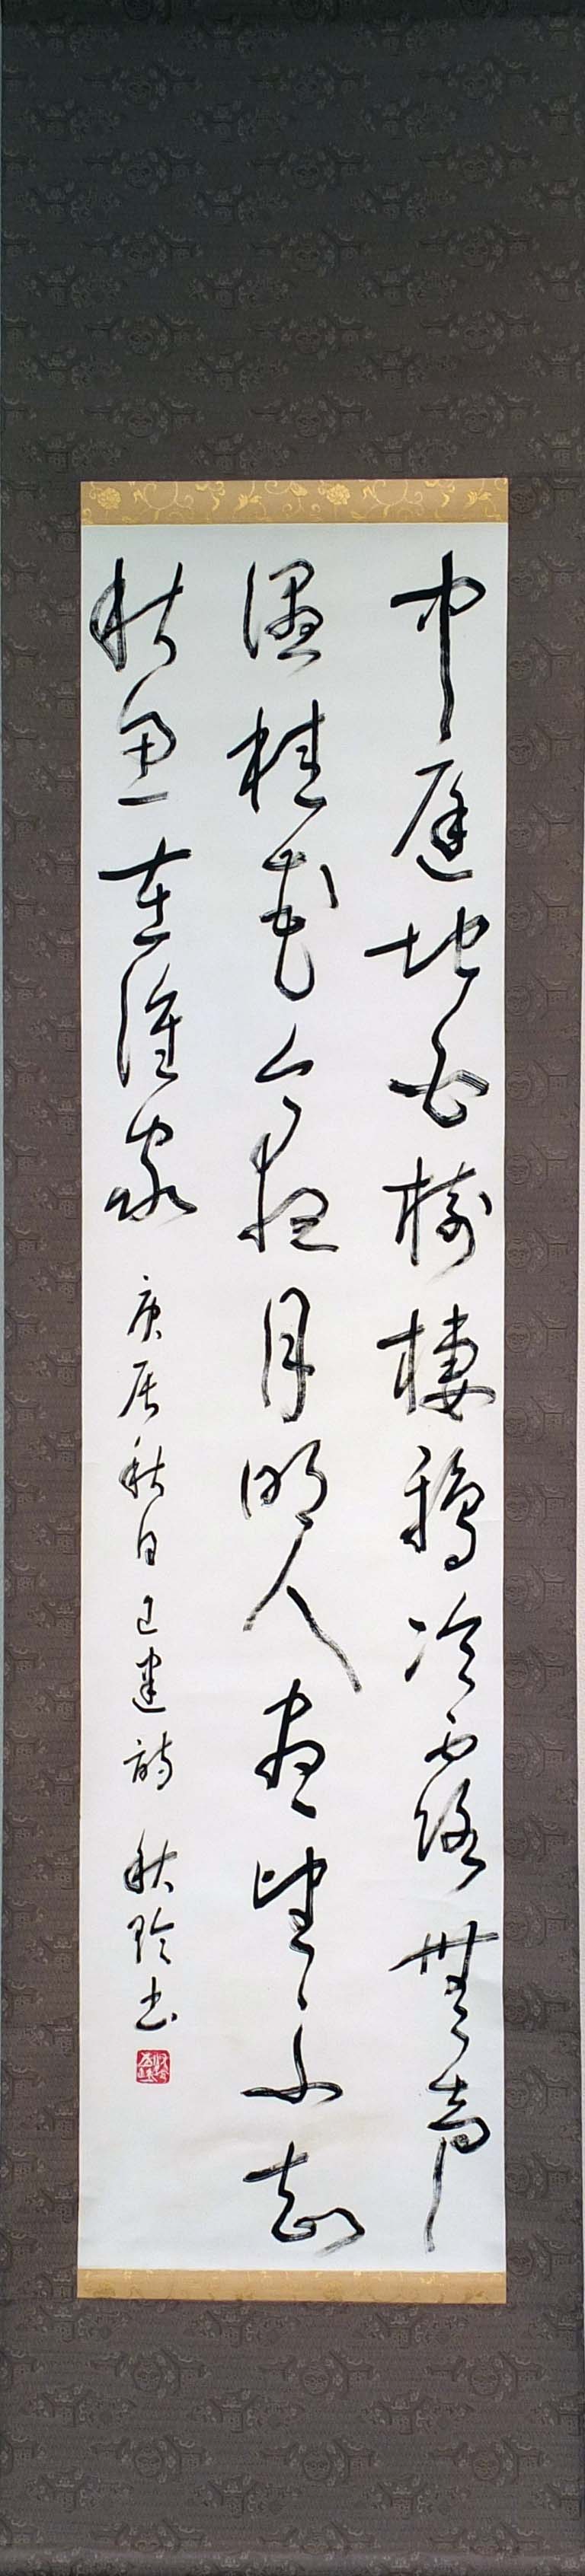 中庭地白樹棲鴉冷露無聲
濕桂花今夜月明人盡望不知
秋思在誰家 庚辰秋日王建詩 秋玲書